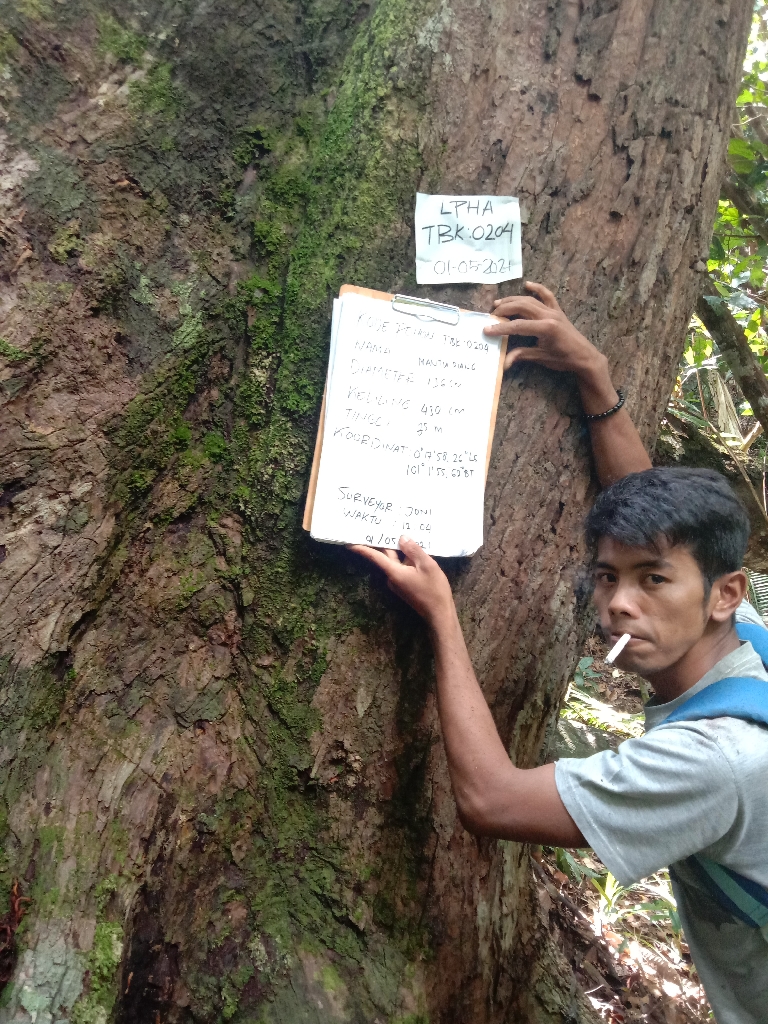 LPHA
TBK:0204
01-05-2021
KODE POHON : TBK:0204
NAMA :
DIAMETER 136 cm
KELILING 430 cm
TINGGI : 25 m
KOORDINAT 0°17'58, 26"LS
101° 1'55, 62"BT
SURVEYOR : JONI
WAKTU : 12 04
01/05/2021